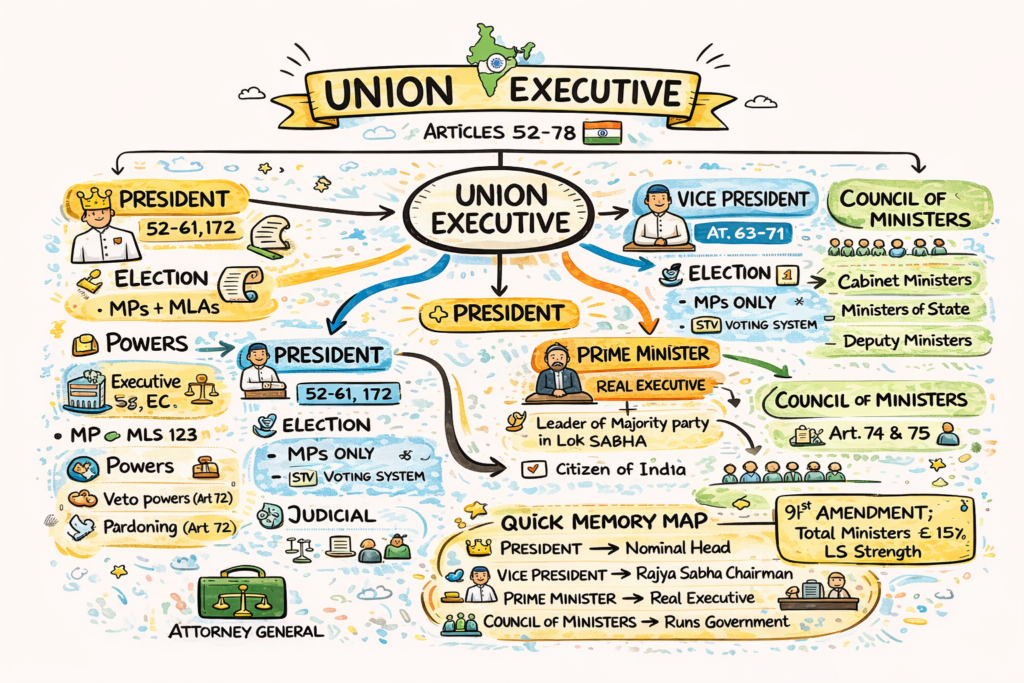 UNION EXECUTIVE
ARTICLES 52-78
PRESIDENT
52-61,172
ELECTION
• MPs + MLAs
POWERS
Executive
58, EC.
• MP MLS 123
Powers
Veto powers (Art 72)
Pardoning (Art 72)
ATTORNEY GENERAL
UNION
EXECUTIVE
PRESIDENT
PRESIDENT
52-61, 172
ELECTION
- MPs ONLY
- STV VOTING SYSTEM
JUDICIAL
VICE PRESIDENT
AT. 63-71
ELECTION 1
- MPs ONLY *
- STV VOTING SYSTEM
COUNCIL OF
MINISTERS
Cabinet Ministers
Ministers of State
Deputy Ministers
PRIME MINISTER
REAL EXECUTIVE
Leader of Majority party
in Lok SABHA
Citizen of India
COUNCIL OF MINISTERS
Art. 74 & 75
91st AMENDMENT;
Total Ministers € 15%
LS Strength
QUICK MEMORY MAP
PRESIDENT → Nominal Head
VICE PRESIDENT → Rajya Sabha Chairman
PRIME MINISTER → Real Executive
COUNCIL OF MINISTERS → Runs Government